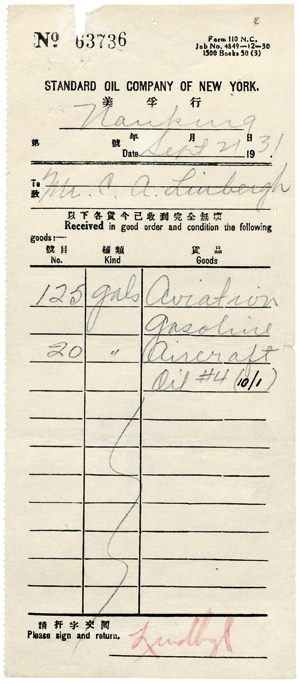 Nº 63736
Form 110 N.C.
Job No. 4849-12-30
1500 Books 50 (3)
STANDARD OIL COMPANY OF NEW YORK.
美孚行
Nanking
第 號 年 月 日
Date Sept 21 1931
To
致 Mr. C. A. Linbergh
以下各貨今已收到完全無壞
Received in good order and condition the following
goods:—
號目 種類 貨品
No. Kind Goods
125 gals Aviation
Gasoline
20 " Aircraft
Oil #4 (10/1)
請折字交閱
Please sign and return.
Lindbergh